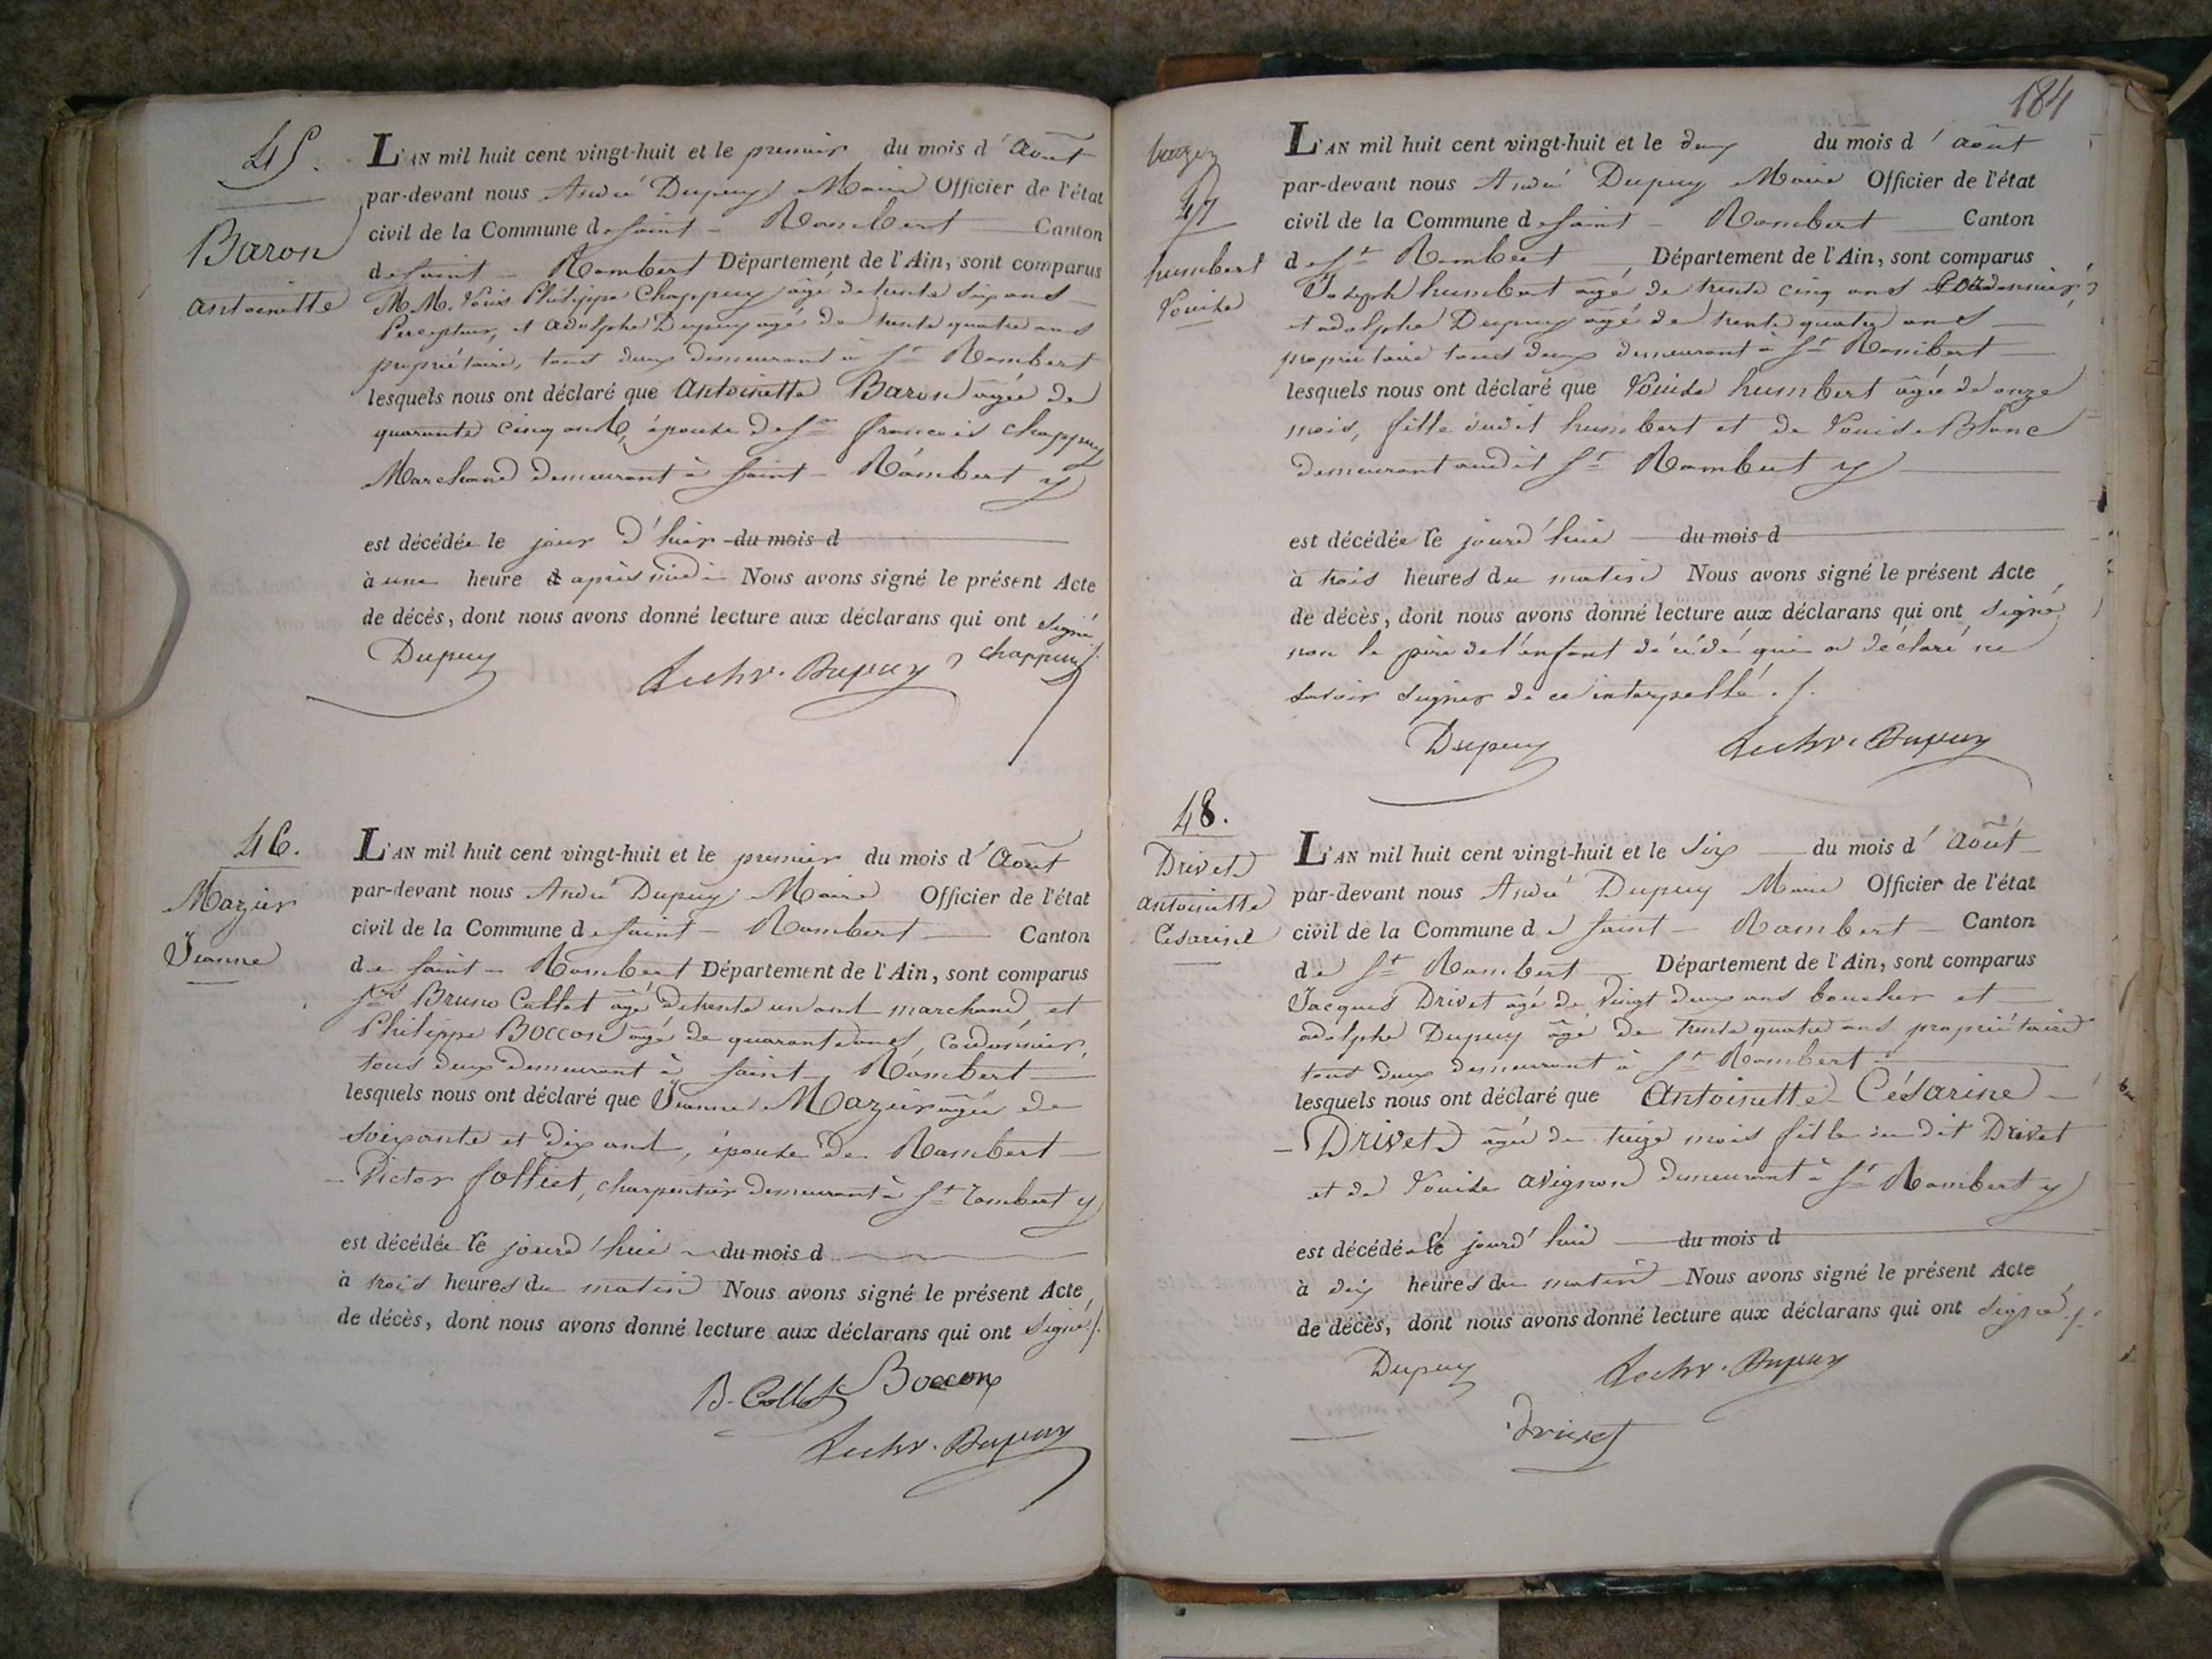 45.
Baron
antoinette
L'AN mil huit cent vingt-huit et le premier du mois d'Août
par-devant nous André Dupuy Maire Officier de l'état
civil de la Commune de Saint-Rambert Canton
de Saint-Rambert Département de l'Ain, sont comparus
M.M. Louis Philippe Chappuy âgé de trente six ans
Percepteur, et adolphe Dupuy âgé de trente quatre ans
propriétaire, tous deux demeurant à St Rambert
lesquels nous ont déclaré que Antoinette Baron âgée de
quarante cinq ans, épouse de Sr françois Chappuy
Marchand demeurant à Saint-Rambert y
est décédée le jour d'hier du mois d
à une heure d après midi Nous avons signé le présent Acte
de décès, dont nous avons donné lecture aux déclarans qui ont signé
Dupuy Dupuy chappuy
46.
Mazuir
Jeanne
L'AN mil huit cent vingt-huit et le premier du mois d'Août
par-devant nous André Dupuy Maire Officier de l'état
civil de la Commune de Saint-Rambert Canton
de Saint-Rambert Département de l'Ain, sont comparus
Srs Bruno Collet âgé de trente un ans marchand et
Philippe Boccon âgé de quarante ans, Cordonnier,
tous deux demeurant à Saint-Rambert
lesquels nous ont déclaré que Jeanne Mazuir âgée de
soixante et dix ans, épouse de Rambert
Victor folliet, charpentier demeurant à St rambert y
est décédée le jourd'hui du mois d
à trois heures du matin Nous avons signé le présent Acte
de décès, dont nous avons donné lecture aux déclarans qui ont signé /.
B. Collet Boccon
Dupuy
184
47
humbert
Louise
L'AN mil huit cent vingt-huit et le deux du mois d'août
par-devant nous André Dupuy Maire Officier de l'état
civil de la Commune de Saint-Rambert Canton
de St Rambert Département de l'Ain, sont comparus
Joseph humbert âgé de trente cinq ans Cordonnier,
et adolphe Dupuy âgé de trente quatre ans
propriétaire tous deux demeurant à St Rambert
lesquels nous ont déclaré que Louise humbert âgée de onze
mois, fille dudit humbert et de Louise Blanc
demeurant audit St Rambert y
est décédée le jourd'hui du mois d
à trois heures du matin Nous avons signé le présent Acte
de décès, dont nous avons donné lecture aux déclarans qui ont signé
non le père de l'enfant décédé qui a déclaré ne
savoir signer de ce interpellé. /.
Dupuy Dupuy
48.
Drivet
antoinette
Césarine
L'AN mil huit cent vingt-huit et le six du mois d'août
par-devant nous André Dupuy Maire Officier de l'état
civil de la Commune de Saint-Rambert Canton
de St Rambert Département de l'Ain, sont comparus
Jacques Drivet âgé de vingt deux ans boucher et
adolphe Dupuy âgé de trente quatre ans propriétaire
tous deux demeurant à St Rambert
lesquels nous ont déclaré que Antoinette Césarine
Drivet âgée de treize mois fille du dit Drivet
et de Louise avignon demeurant à St Rambert y
est décédée le jourd'hui du mois d
à dix heures du matin Nous avons signé le présent Acte
de décès, dont nous avons donné lecture aux déclarans qui ont signé /.
Dupuy Dupuy
Drivet